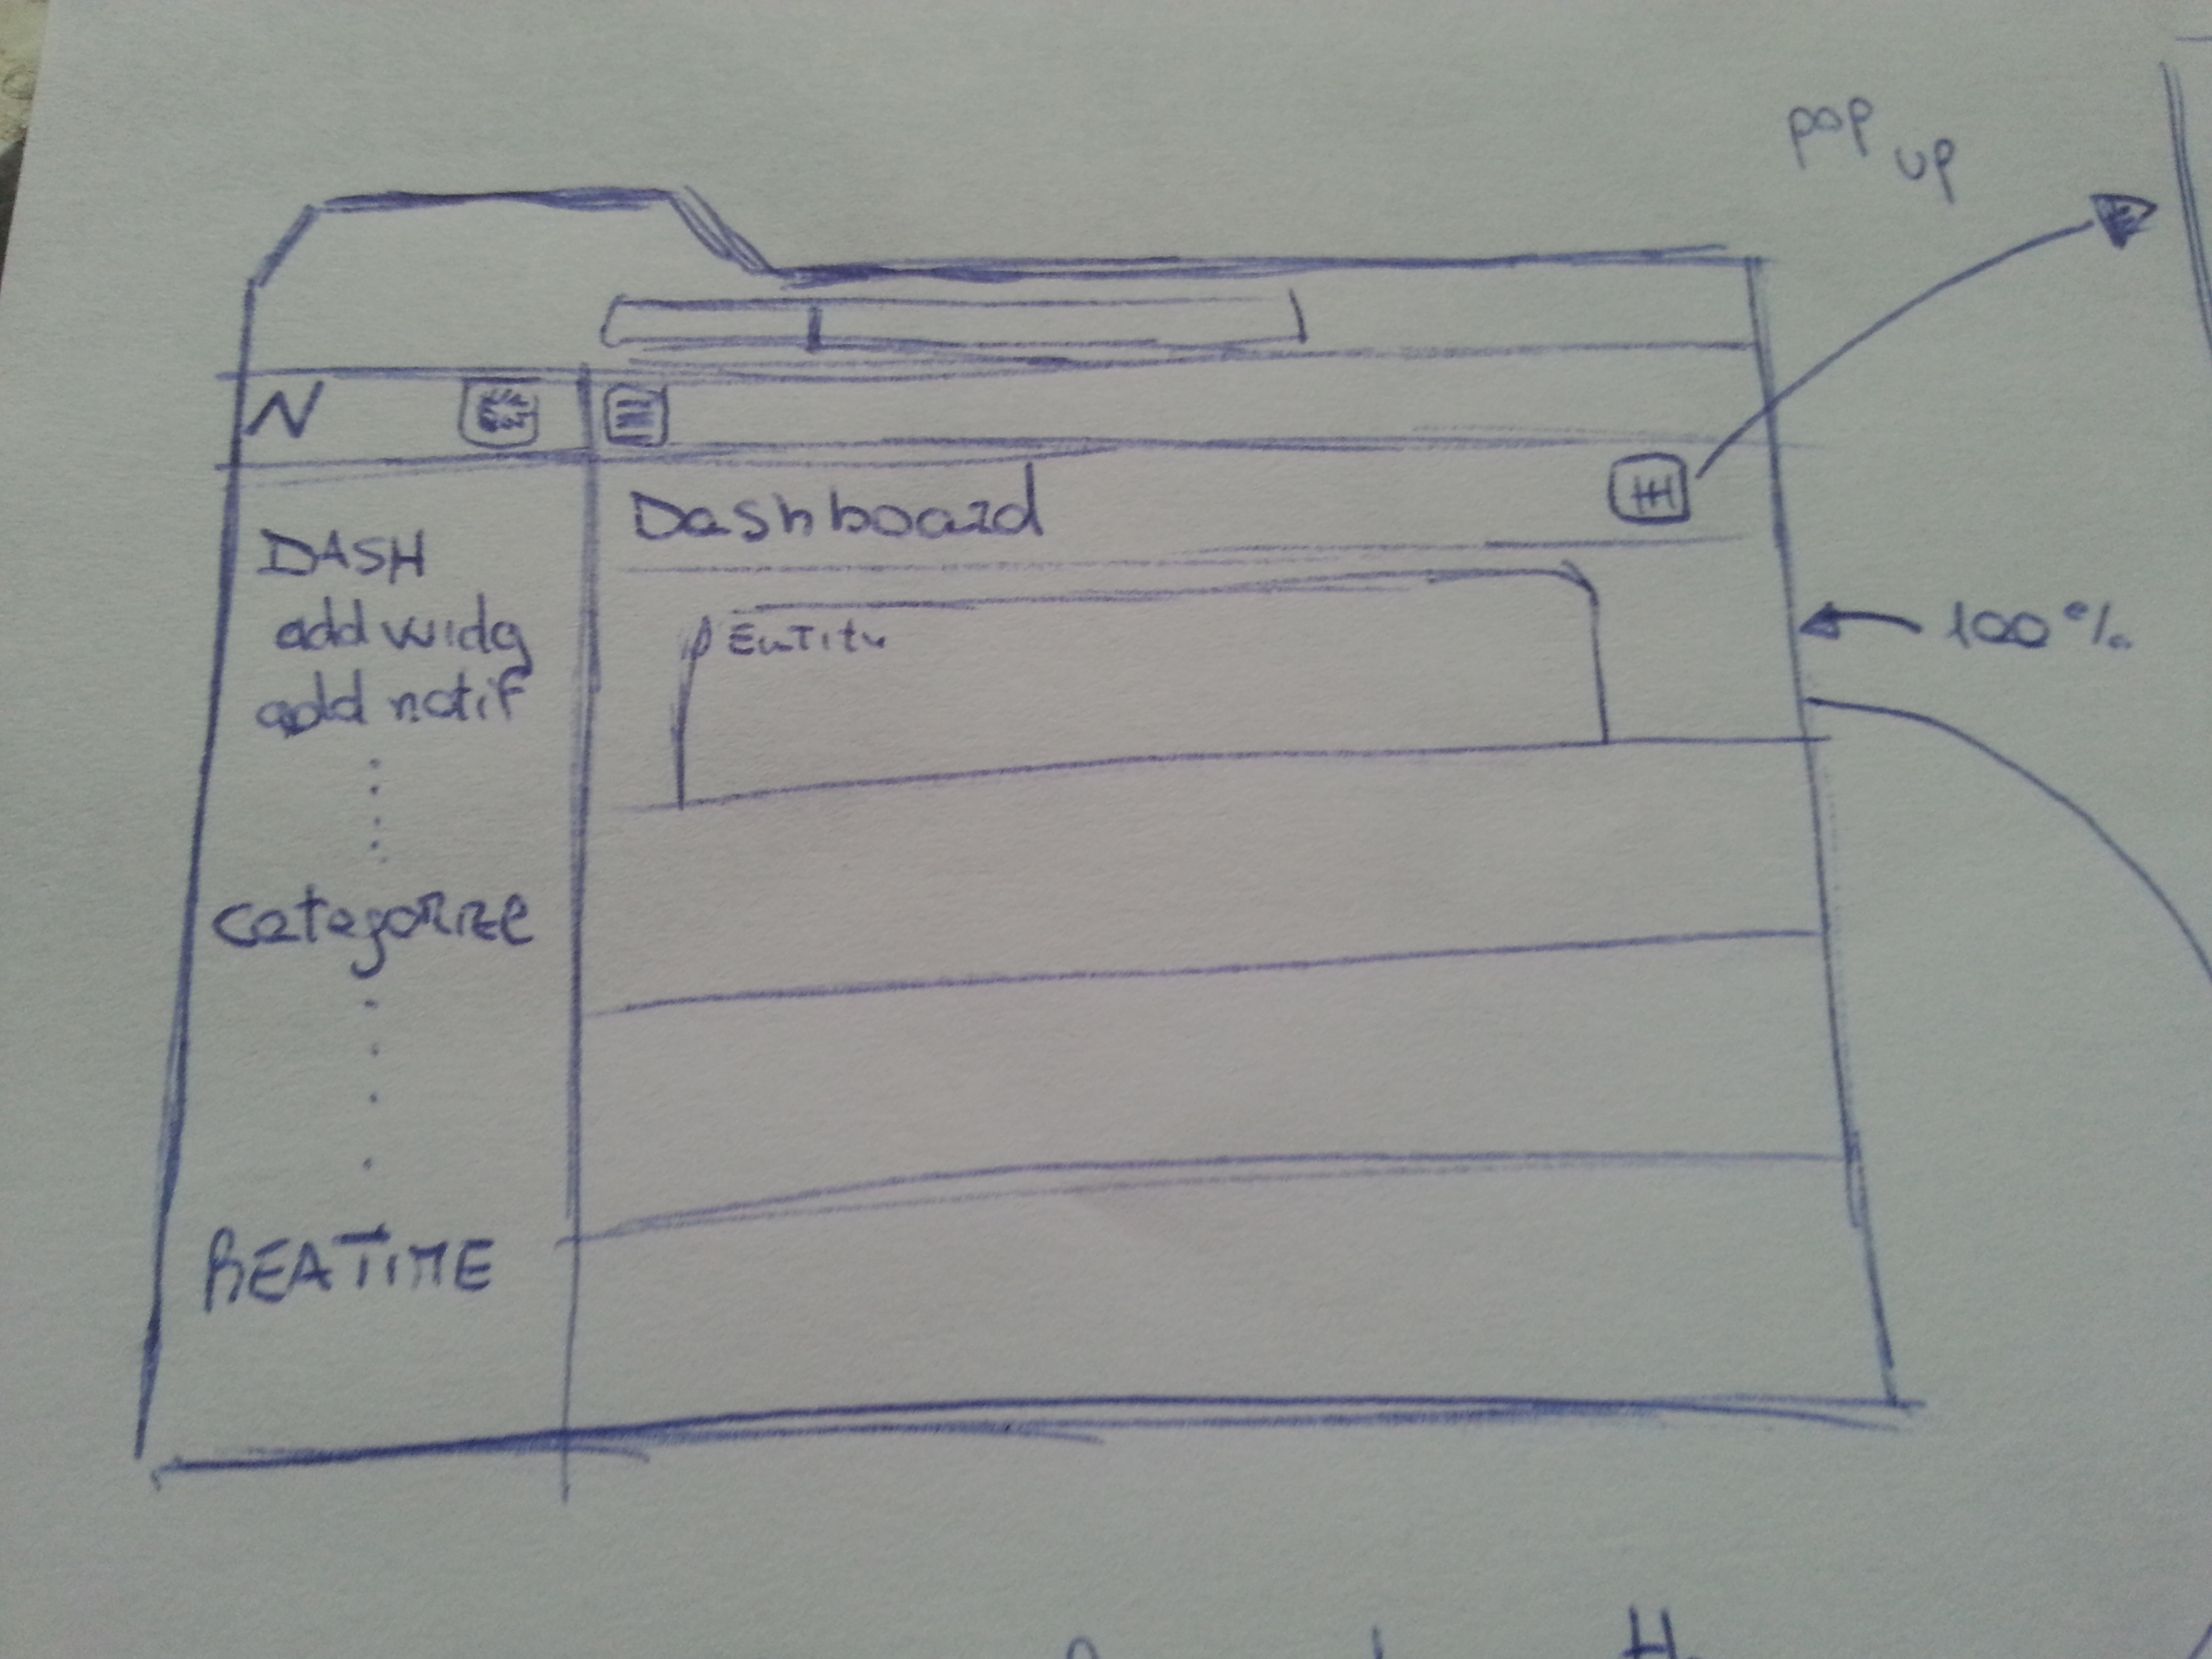 N
DASH
add widg
add notif
categorize
REATIME
Dashboard
pop up
100%
H